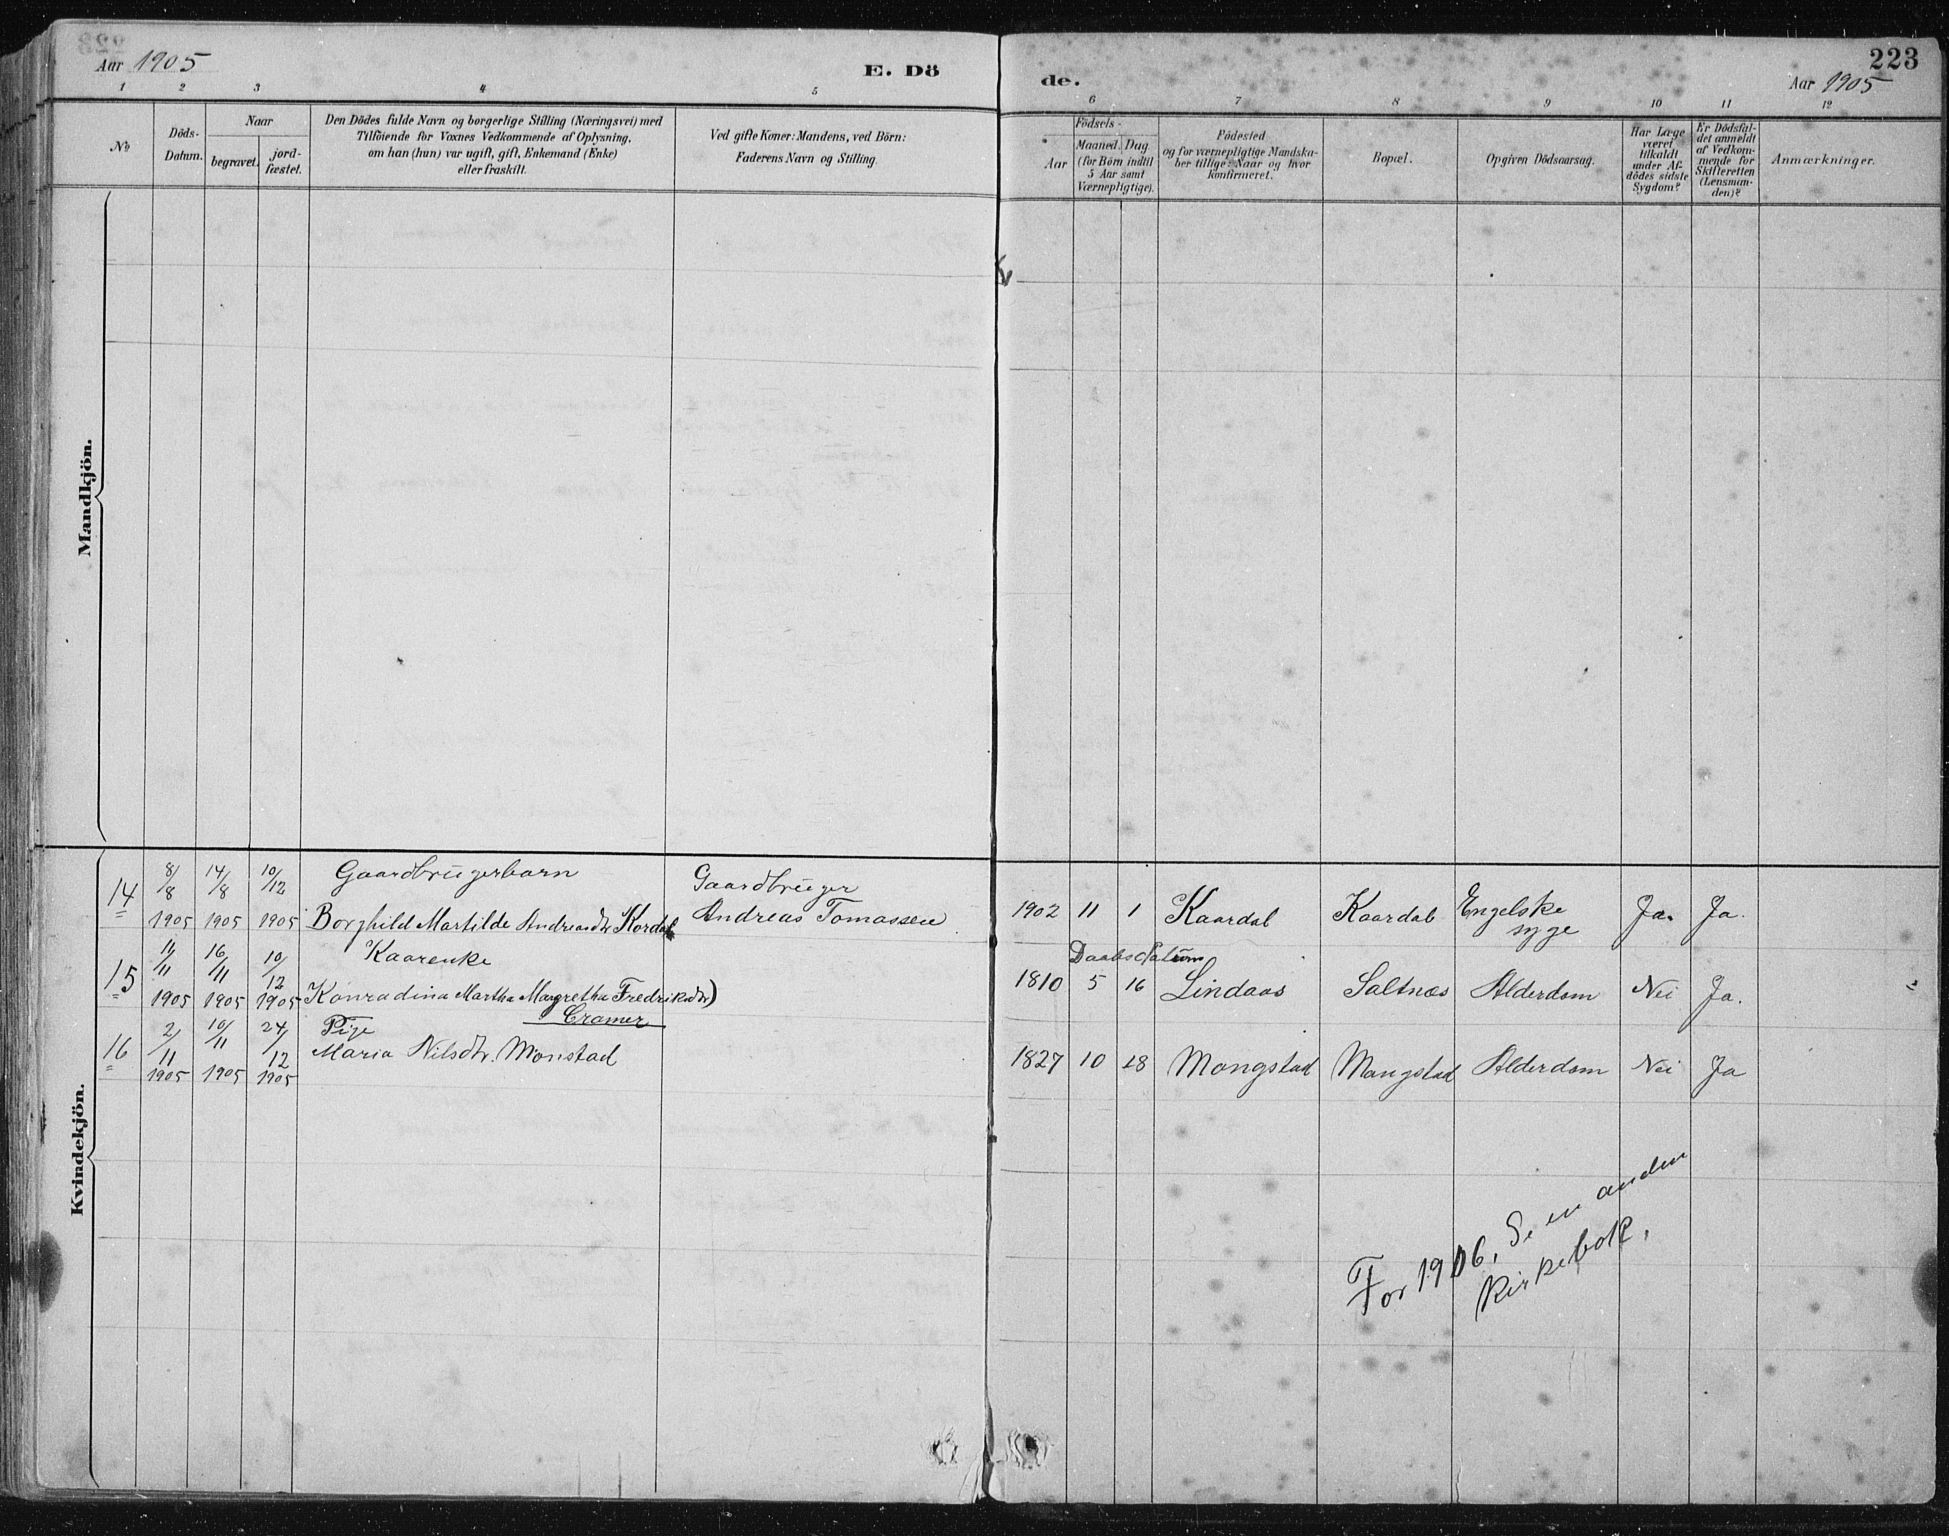 Aar 1905
E. Dö
de.
223
Aar 1905
1 2 3 4 5 6 7 8 9 10 11 12
№
Döds-
Datum.
Naar
begravet.
jord-
fæstet.
Den Dödes fulde Navn og borgerlige Stilling (Næringsvei) med
Tilföiende for Voxnes Vedkommende af Oplysning,
om han (hun) var ugift, gift, Enkemand (Enke)
eller fraskilt.
Ved gifte Koner: Mandens, ved Börn:
Faderens Navn og Stilling.
Födsels-
Aar
Maaned. Dag
(for Börn indtil
5 Aar samt
Værnepligtige).
Födested
og for værnepligtige Mandska-
ber tillige: Naar og hvor
konfirmeret.
Bopæl.
Opgiven Dödsaarsag.
Har Læge
været
tilkaldt
under Af-
dödes sidste
Sygdom?
Er Dödsfal-
det anmeldt
af Vedkom-
mende for
Skifteretten
(Lensman-
den)?
Anmærkninger.
Mandkjön.
Kvindekjön.
14
8/8 1905
14/8 1905
10/12 1905
Gaardbrugerbarn
Borghild Martilde Andreasdtr Kordal
Gaardbruger
Andreas Tomassen
1902 11 1 Kaardal Kaardal Engelske
syge
Ja. Ja.
15
11/11 1905
16/11 1905
10/12 1905
Kaarenke
Konradina Martha Margretha Fredriksdtr)
Cramer
Daabsdatum
1810 5 16 Lindaas Saltnæs Alderdom Nei Ja.
16
2/11 1905
10/11 1905
24/12 1905
Pige
Maria Nilsdtr. Monstad
1827 10 28 Mongstad Mongstad Alderdom Nei Ja
For 1906, Se en anden
Kirkebok.